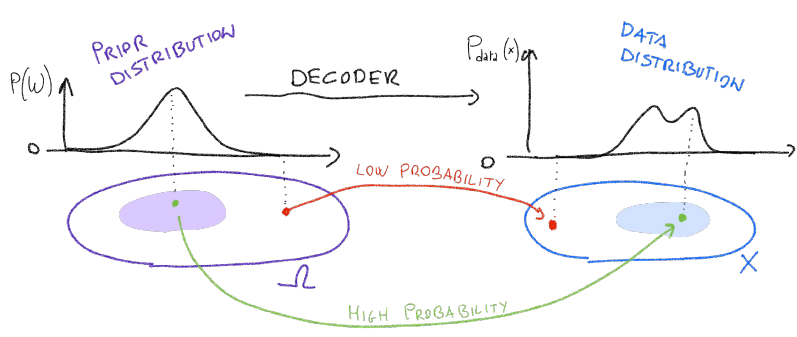 PRIOR
DISTRIBUTION
P(W)
0
DECODER
Pdata(x)
DATA
DISTRIBUTION
0
LOW PROBABILITY
Ω
X
HIGH PROBABILITY